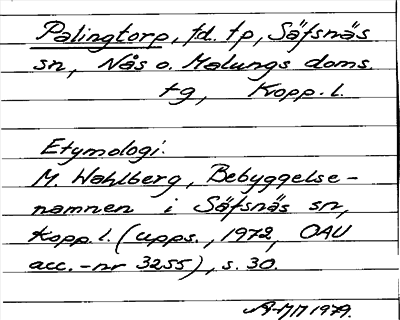 Palingtorp, fd. tp, Säfsnäs
sn, Nås o. Malungs doms.
tg, Kopp. l.
Etymologi:
M. Wahlberg, Bebyggelse-
namnen i Säfsnäs sn,
Kopp. l. (Upps., 1972, OAU
acc.-nr 3255), s. 30.
A-MM 1979.